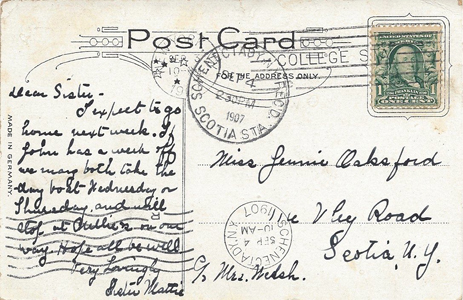 Post Card
FOR THE ADDRESS ONLY.
COLLEGE ST
SCHENECTADY, REC'D.
SEP 4
230 PM
1907
SCOTIA STA.
UNITED STATES OF AMERICA
FRANKLIN
ONE CENT
MADE IN GERMANY.
Dear Sister-
I expect to go
home next week. If
John has a week off
we may both take the
day boat Wednesday or
Thursday, and will
stop at Nellie's on our
way. Hope all is well
Very Lovingly
Sister Mattie
Miss Jennie Oaksford
Vley Road
Scotia, N.Y.
c/o Mrs. Welsh.
SCHENECTADY, N.Y.
SEP 4
10-AM
1907